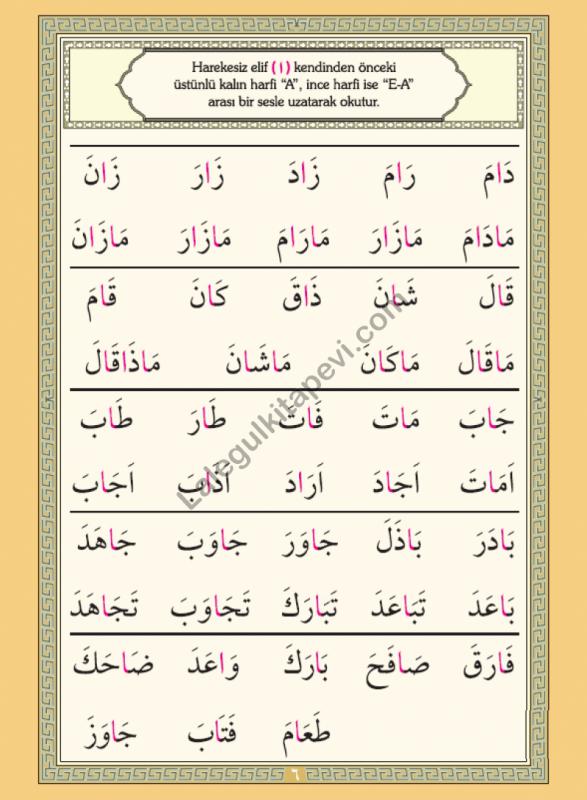 Harekesiz elif (ا) kendinden önceki
üstünlü kalın harfi “A”, ince harfi ise “E-A”
arası bir sesle uzatarak okutur.
دَامَ رَامَ زَادَ زَارَ زَانَ
مَادَامَ مَازَارَ مَارَامَ مَازَارَ مَازَانَ
قَالَ شَانَ ذَاقَ كَانَ قَامَ
مَاقَالَ مَاكَانَ مَاشَانَ مَاذَاقَالَ
جَابَ مَاتَ فَاتَ طَارَ طَابَ
اَمَاتَ اَجَادَ اَرَادَ اَذَابَ اَجَابَ
بَادَرَ بَاذَلَ جَاوَرَ جَاوَبَ جَاهَدَ
بَاعَدَ تَبَاعَدَ تَبَارَكَ تَجَاوَبَ تَجَاهَدَ
فَارَقَ صَافَحَ بَارَكَ وَاعَدَ ضَاحَكَ
طَعَامَ فَتَابَ جَاوَزَ
٦
Lalegulkitapevi.com